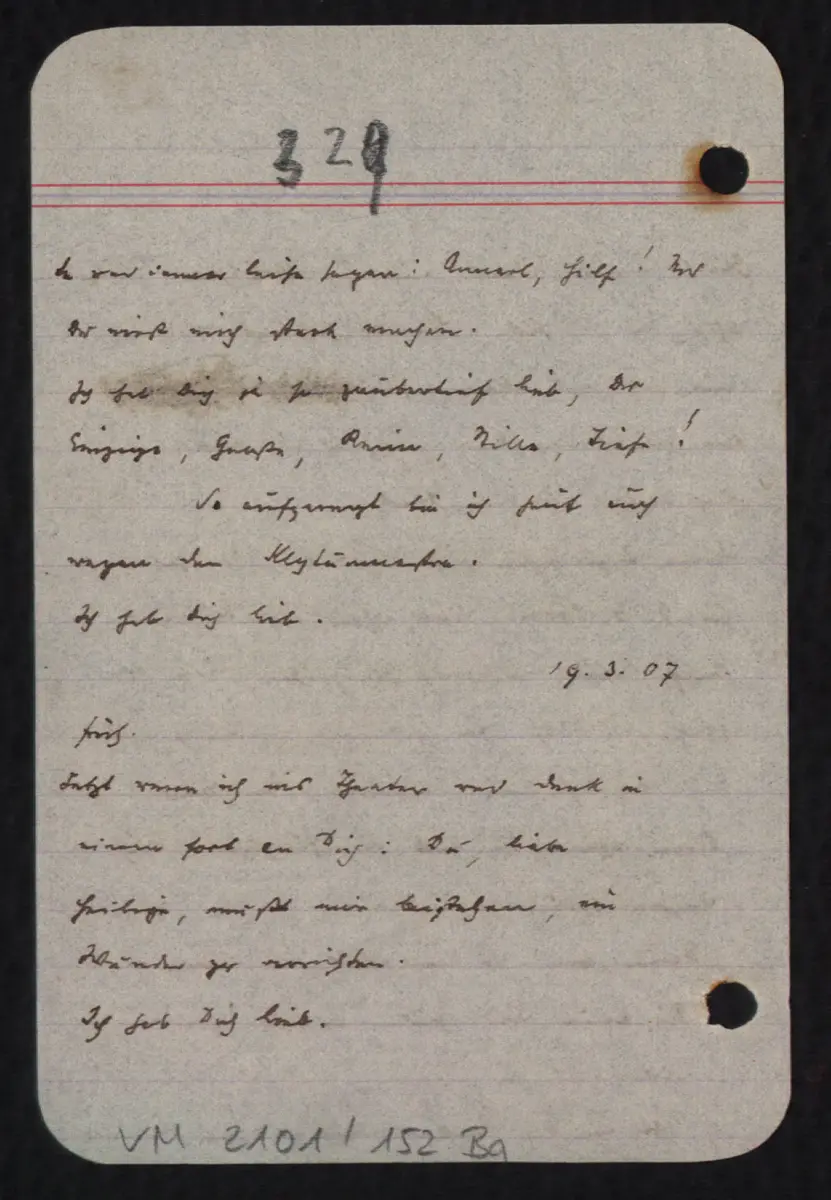 329
Du und immer leise sagen: Annerl, hilf! Und
Du mußt mich stark machen.
Ich hab Dich ja so zaubertief lieb, Du
Einzige, Große, Reine, Stille, Tiefe!
So aufgeregt bin ich heut auch
wegen der Klytämnestra.
Ich hab Dich lieb.
19. 3. 07
früh.
Jetzt renn ich ins Theater und denk in
einem fort an Dich: Du, liebe
Heilige, mußt mir beistehen, ein
Wunder zu verrichten.
Ich hab Dich lieb.
VM 2101 / 152 Ba